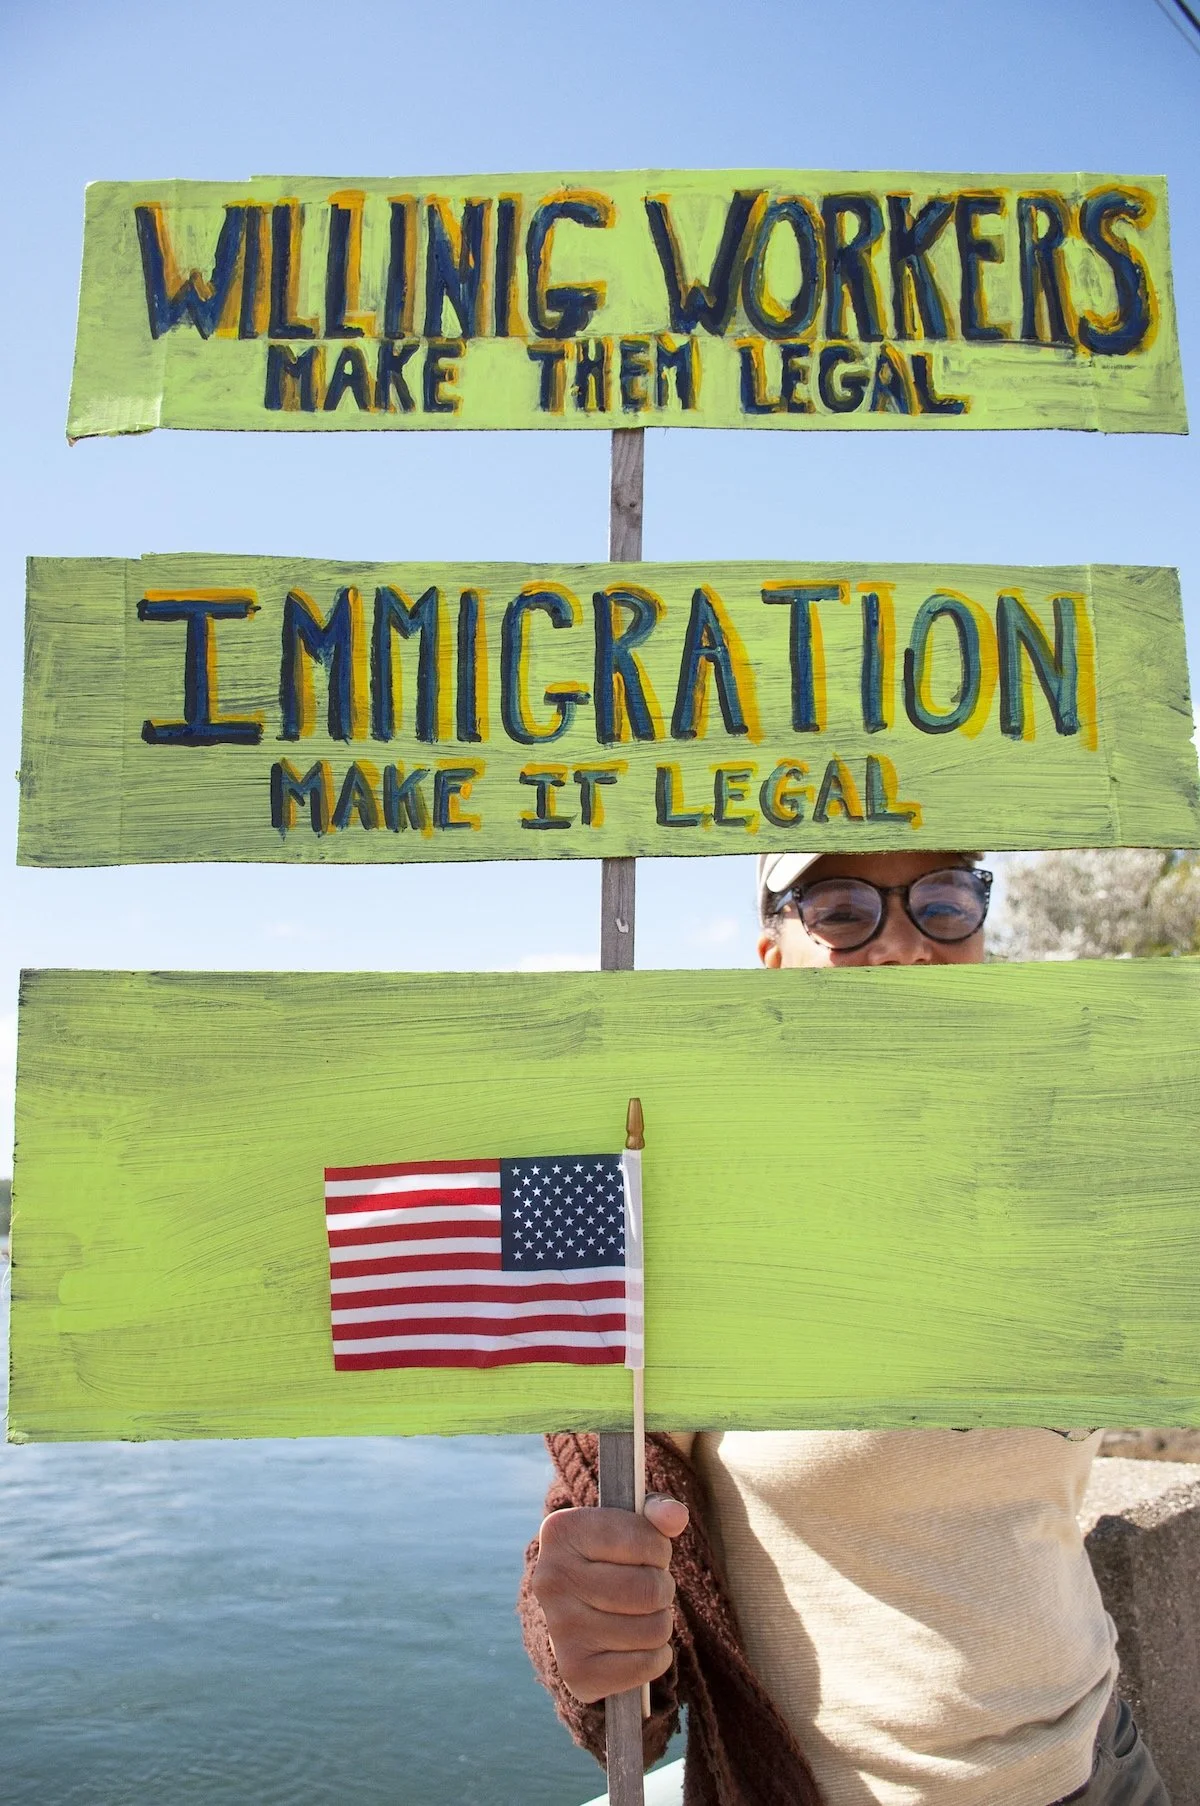 WILLINIG WORKERS
MAKE THEM LEGAL
IMMIGRATION
MAKE IT LEGAL